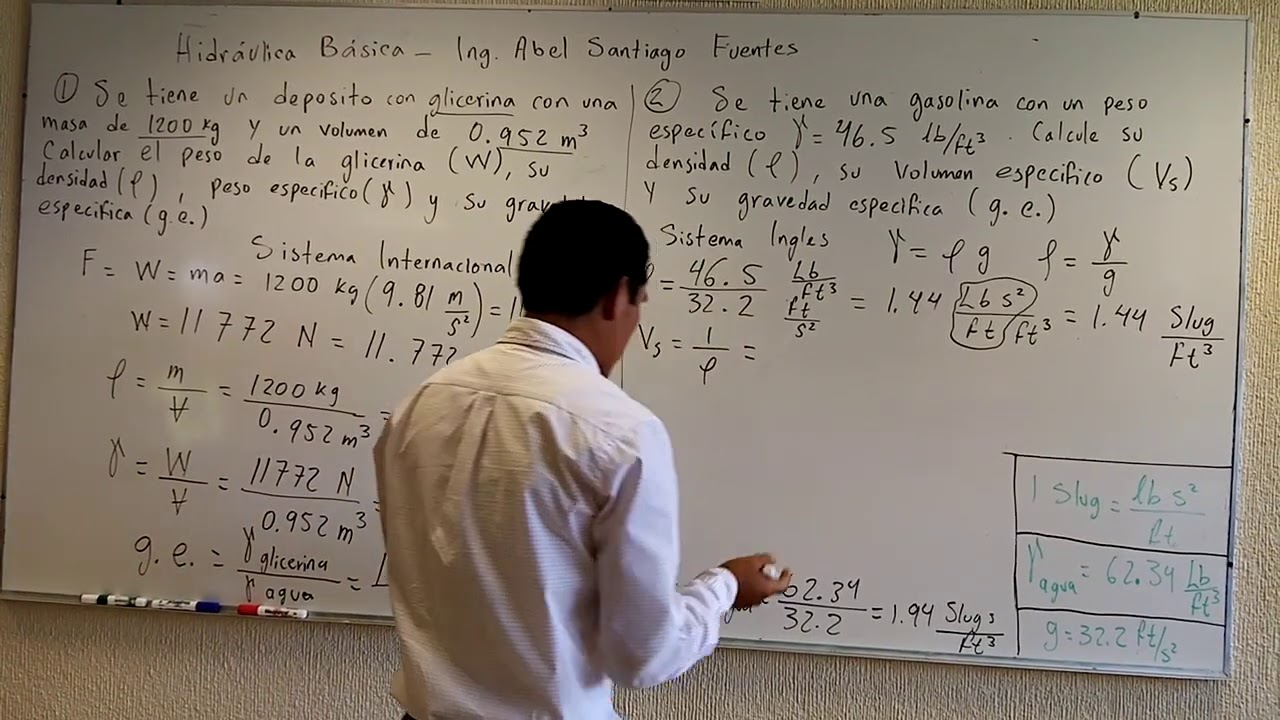 Hidráulica Básica – Ing. Abel Santiago Fuentes
① Se tiene un deposito con glicerina con una
masa de 1200 kg y un volumen de 0.952 m³
Calcular el peso de la glicerina (W), su
densidad (ρ), peso especifico (γ) y su
especifica (g.e.)
Sistema Internacional
F = W = ma = 1200 kg (9.81 m/s²) =
W = 11 772 N = 11.772
ρ = m/V = 1200 kg / 0.952 m³ =
γ = W/V = 11772 N / 0.952 m³ =
g.e. = γ glicerina / γ agua =
② Se tiene una gasolina con un peso
específico γ = 46.5 lb/ft³. Calcule su
densidad (ρ), su volumen especifico (Vs)
y su gravedad específica (g.e.)
Sistema Ingles γ = ρ g ρ = γ/g
= 46.5/32.2 Lb/ft³ / ft/s² = 1.44 Lb s²/ft ft³ = 1.44 Slug/ft³
Vs = 1/ρ =
62.34/32.2 = 1.94 Slugs/ft³
1 Slug = lb s²/ft
γ agua = 62.34 Lb/ft³
g = 32.2 ft/s²